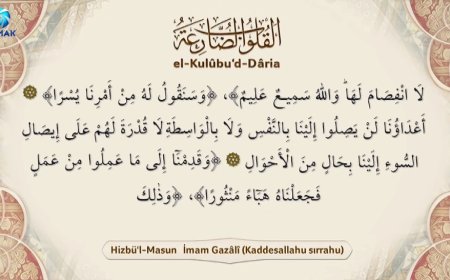 MAK
القلوب الضارعة
el-Kulûbu'd-Dâria
لَا انْفِصَامَ لَهَا وَاللّٰهُ سَمِيعٌ عَلِيمٌ﴾، ﴿وَسَنَقُولُ لَهُ مِنْ أَمْرِنَا يُسْرًا﴾
أَعْدَاؤُنَا لَنْ يَصِلُوا إِلَيْنَا بِالنَّفْسِ وَلَا بِالْوَاسِطَةِ لَا قُدْرَةَ لَهُمْ عَلَى إِيصَالِ
السُّوءِ إِلَيْنَا بِحَالٍ مِنَ الْأَحْوَالِ ﴿وَقَدِمْنَا إِلَى مَا عَمِلُوا مِنْ عَمَلٍ
فَجَعَلْنَاهُ هَبَاءً مَنْثُورًا﴾، ﴿وَذٰلِكَ
Hizbü'l-Masun İmam Gazâlî (Kaddesallahu sırrahu)